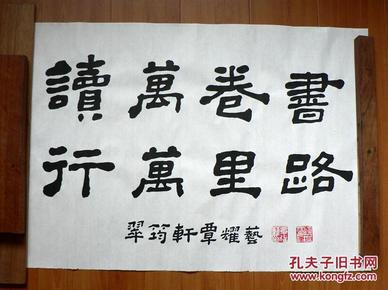 讀萬卷書
行萬里路
翠筠軒覃耀藝
孔夫子旧书网
www.kongfz.com